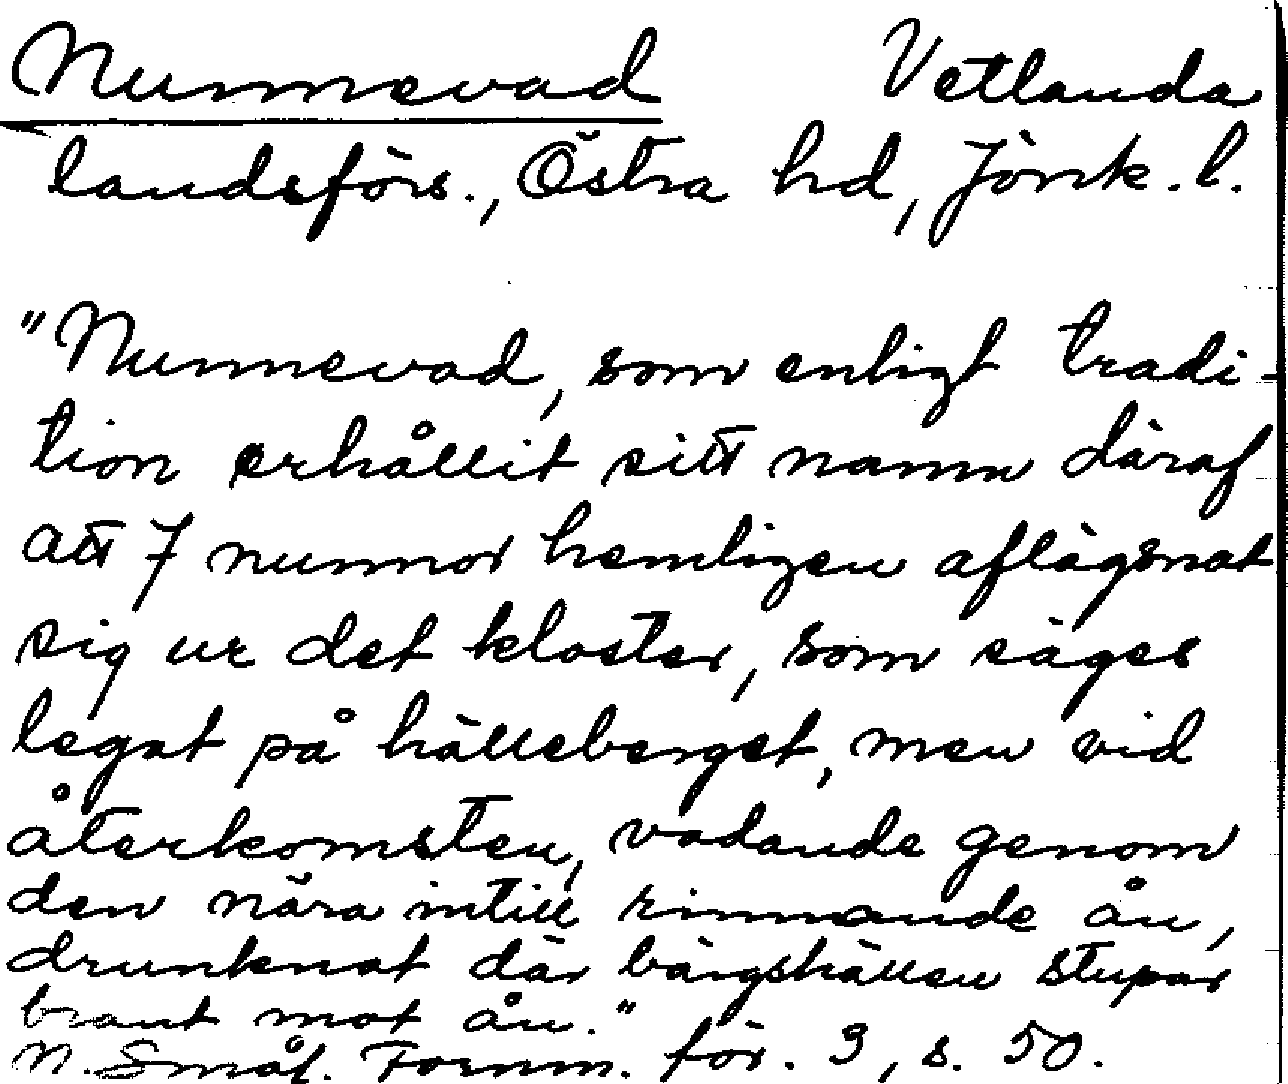 Nunnevad Vetlanda
landsförs., Östra hd, Jönk. l.
"Nunnevad, som enligt tradi-
tion erhållit sitt namn däraf
att 7 nunnor hemligen aflägsnat
sig ur det kloster, som säges
legat på hälleberget, men vid
återkomsten, vadande genom
den nära intill rinnande ån,
drunknat där bärgshällen stupar
brant mot ån."
N. Smål. Fornm. för. 3, s. 50.